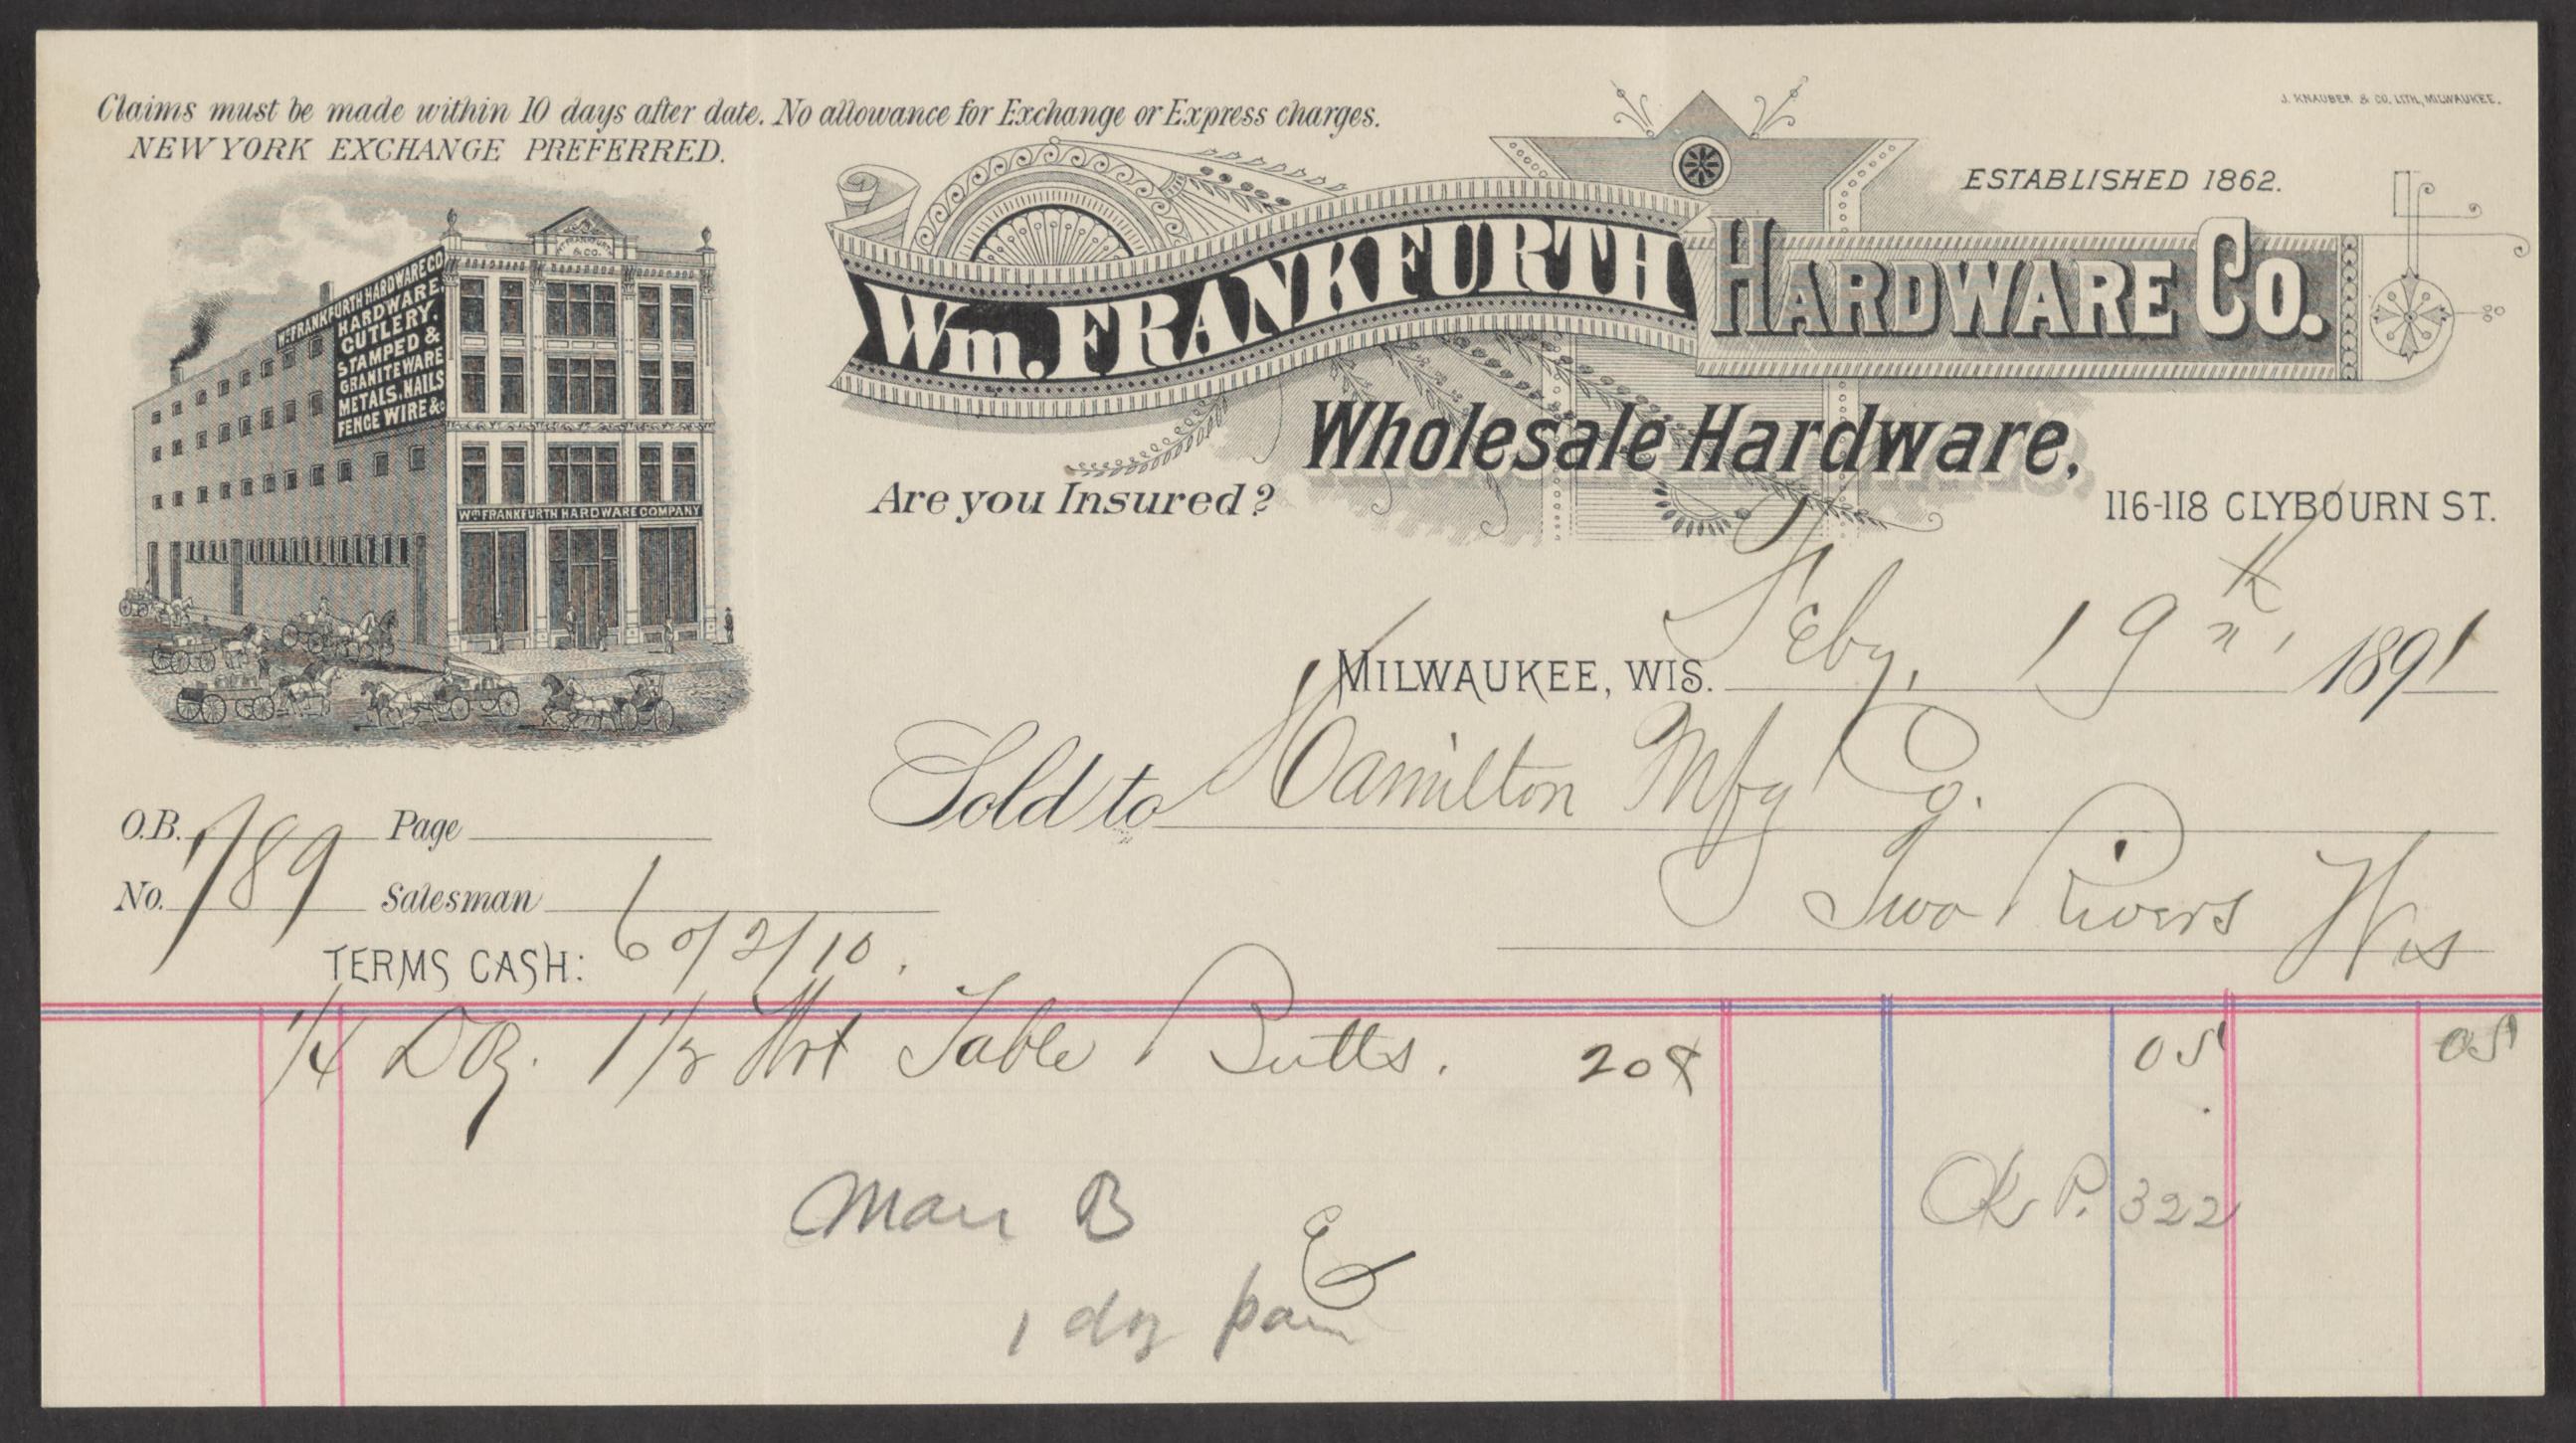 Claims must be made within 10 days after date. No allowance for Exchange or Express charges.
NEW YORK EXCHANGE PREFERRED.
J. KNAUBER & CO. LITH, MILWAUKEE.
ESTABLISHED 1862.
Wm. FRANKFURTH HARDWARE CO.
Wholesale Hardware,
Are you Insured?
116-118 CLYBOURN ST.
WM FRANKFURTH HARDWARE CO
HARDWARE,
CUTLERY,
STAMPED &
GRANITEWARE
METALS, NAILS
FENCE WIRE &c
WM FRANKFURTH
& CO.
WM FRANKFURTH HARDWARE COMPANY
MILWAUKEE, WIS. Feby. 19th 1891
Sold to Hamilton Mfg Co.
Two Rivers Wis
O.B. Page
No. 789 Salesman
TERMS CASH: 60/2/10.
1/4 Doz. 1 1/2 Wrt Table Butts. 20¢ 05 05
Ok P. 322
B
1 doz